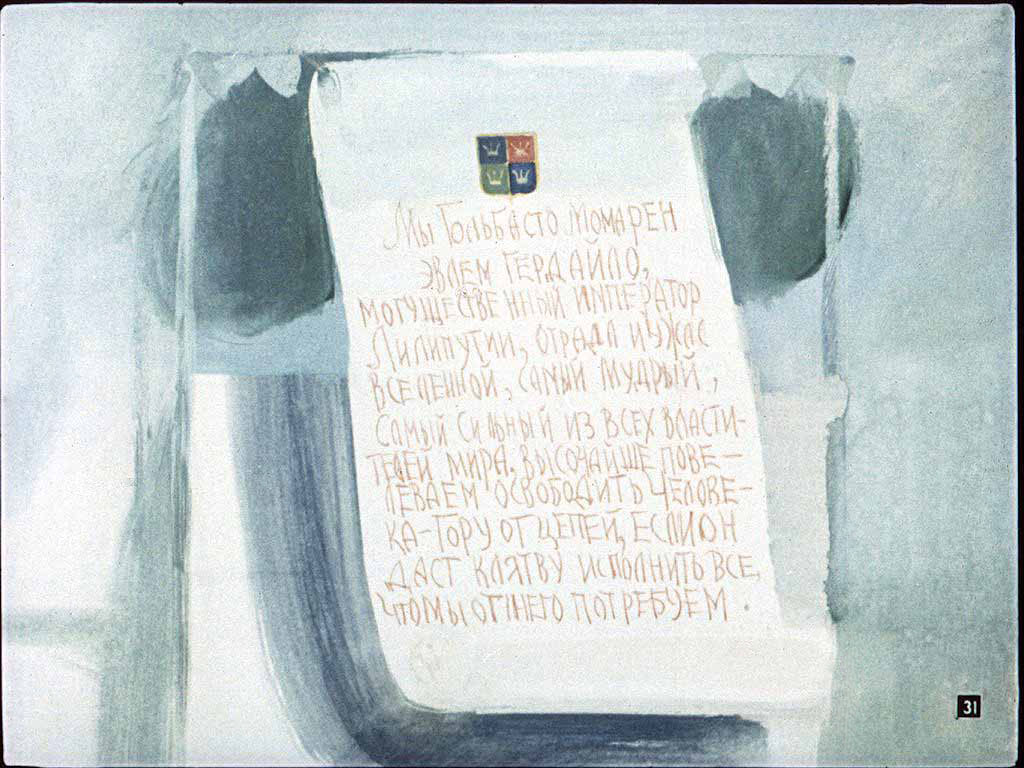 Мы Гольбасто Момарен
эвлем Гердайло,
могущественный император
Лилипутии, отрада и ужас
вселенной, самый мудрый,
самый сильный из всех власти-
телей мира. Высочайше пове-
леваем освободить Челове-
ка-Гору от цепей, если он
даст клятву исполнить все,
что мы от него потребуем.
31